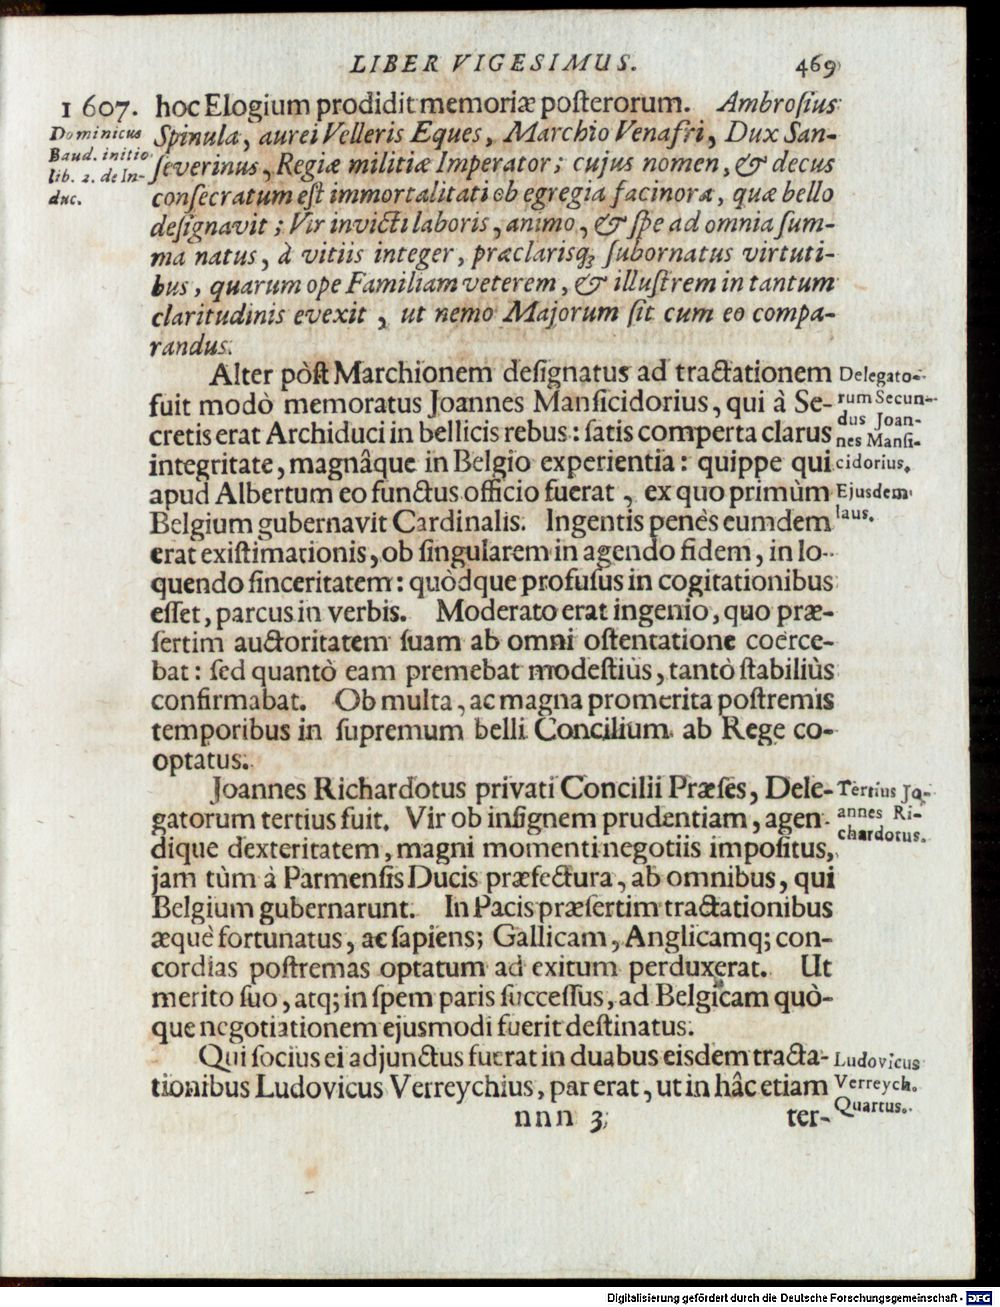 LIBER VIGESIMUS. 469
1607. hoc Elogium prodidit memoriæ posterorum. Ambrosius
Dominicus
Baud. initio
lib. 2. de In-
duc.
Spinula, aurei Velleris Eques, Marchio Venafri, Dux San-
severinus, Regiæ militiæ Imperator; cujus nomen, & decus
consecratum est immortalitati ob egregia facinora, quæ bello
designavit; Vir invicti laboris, animo, & spe ad omnia sum-
ma natus, à vitiis integer, præclarisq; subornatus virtuti-
bus, quarum ope Familiam veterem, & illustrem in tantum
claritudinis evexit, ut nemo Majorum sit cum eo compa-
randus.
Alter pòst Marchionem designatus ad tractationem
fuit modò memoratus Joannes Mansicidorius, qui à Se-
cretis erat Archiduci in bellicis rebus: satis comperta clarus
integritate, magnâque in Belgio experientia: quippe qui
apud Albertum eo functus officio fuerat, ex quo primùm
Belgium gubernavit Cardinalis. Ingentis penès eumdem
erat existimationis, ob singularem in agendo fidem, in lo-
quendo sinceritatem: quòdque profusus in cogitationibus
esset, parcus in verbis. Moderato erat ingenio, quo præ-
sertim auctoritatem suam ab omni ostentatione coërce-
bat: sed quantò eam premebat modestiùs, tantò stabiliùs
confirmabat. Ob multa, ac magna promerita postremis
temporibus in supremum belli Concilium ab Rege co-
optatus.
Delegato-
rum Secun-
dus Joan-
nes Mansi-
cidorius.
Ejusdem
laus.
Joannes Richardotus privati Concilii Præses, Dele-
gatorum tertius fuit. Vir ob insignem prudentiam, agen-
dique dexteritatem, magni momenti negotiis impositus,
jam tùm à Parmensis Ducis præfectura, ab omnibus, qui
Belgium gubernarunt. In Pacis præsertim tractationibus
æquè fortunatus, ac sapiens; Gallicam, Anglicamq; con-
cordias postremas optatum ad exitum perduxerat. Ut
merito suo, atq; in spem paris successus, ad Belgicam quò-
que negotiationem ejusmodi fuerit destinatus.
Tertius Jo-
annes Ri-
chardotus.
Qui socius ei adjunctus fuerat in duabus eisdem tracta-
tionibus Ludovicus Verreychius, par erat, ut in hâc etiam
Ludovicus
Verreych.
Quartus.
nnn 3 ter-
Digitalisierung gefördert durch die Deutsche Forschungsgemeinschaft - DFG